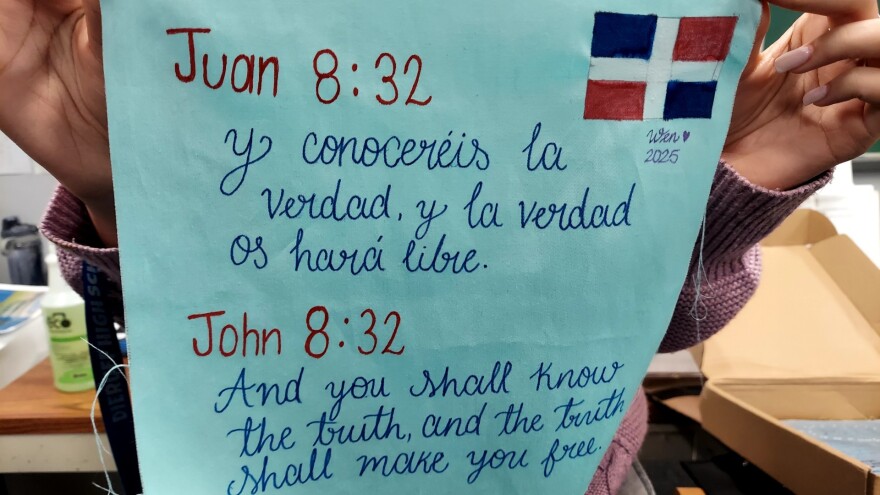 Juan 8:32
Y conoceréis la
verdad, y la verdad
os hará libre.
Wen
2025
John 8:32
And you shall know
the truth, and the truth
shall make you free.